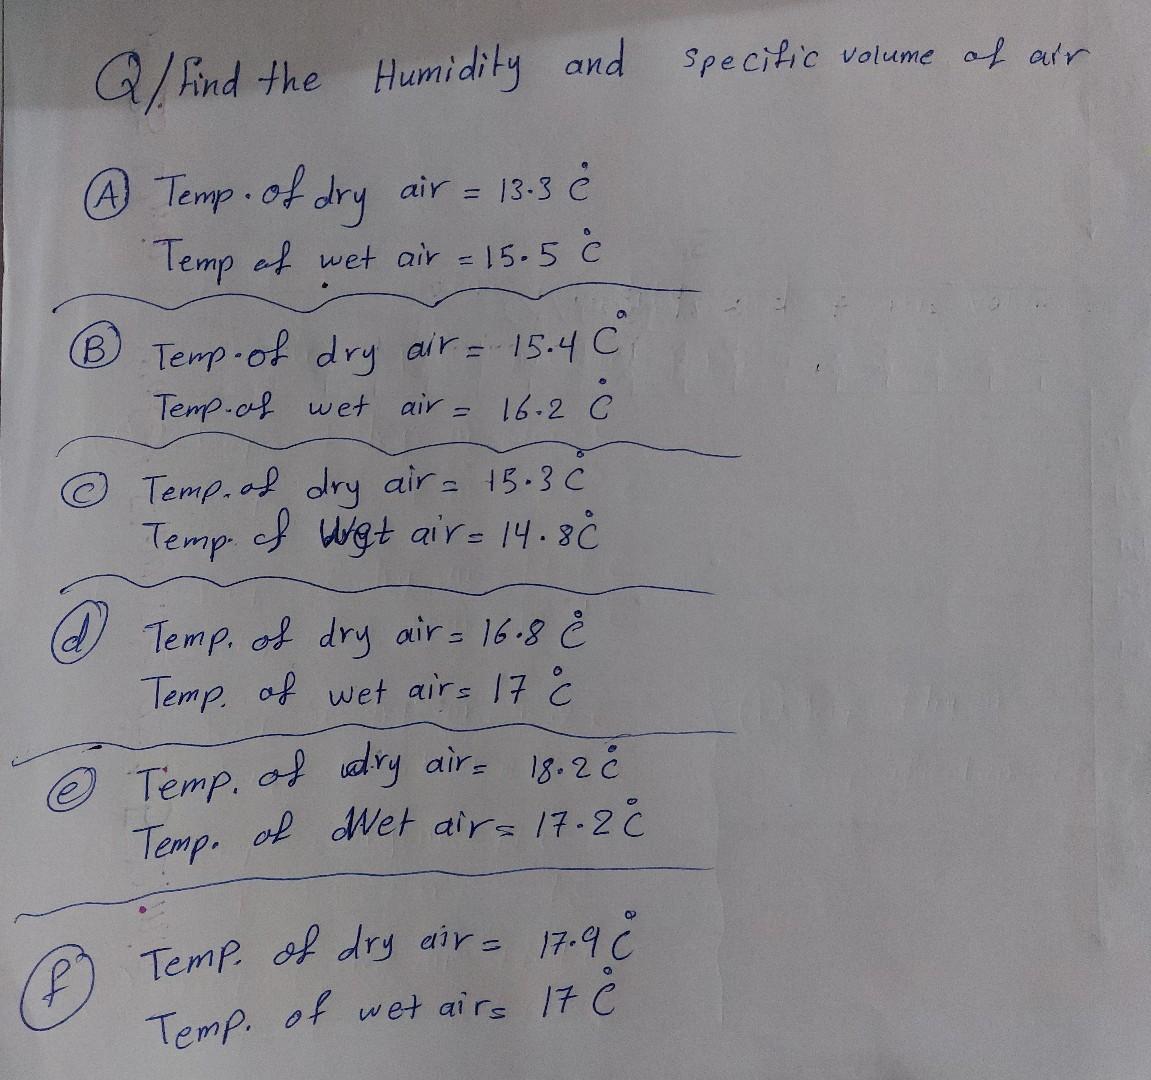 Q/ Find the Humidity and specific volume of air
Ⓐ Temp. of dry air = 13.3 C°
Temp of wet air = 15.5 C°
Ⓑ Temp. of dry air = 15.4 C°
Temp. of wet air = 16.2 C°
ⓒ Temp. of dry air = 15.3 C°
Temp. of Wet air = 14.8 C°
ⓓ Temp. of dry air = 16.8 C°
Temp. of wet air = 17 C°
ⓔ Temp. of dry air = 18.2 C°
Temp. of Wet air = 17.2 C°
ⓕ Temp. of dry air = 17.9 C°
Temp. of wet air = 17 C°